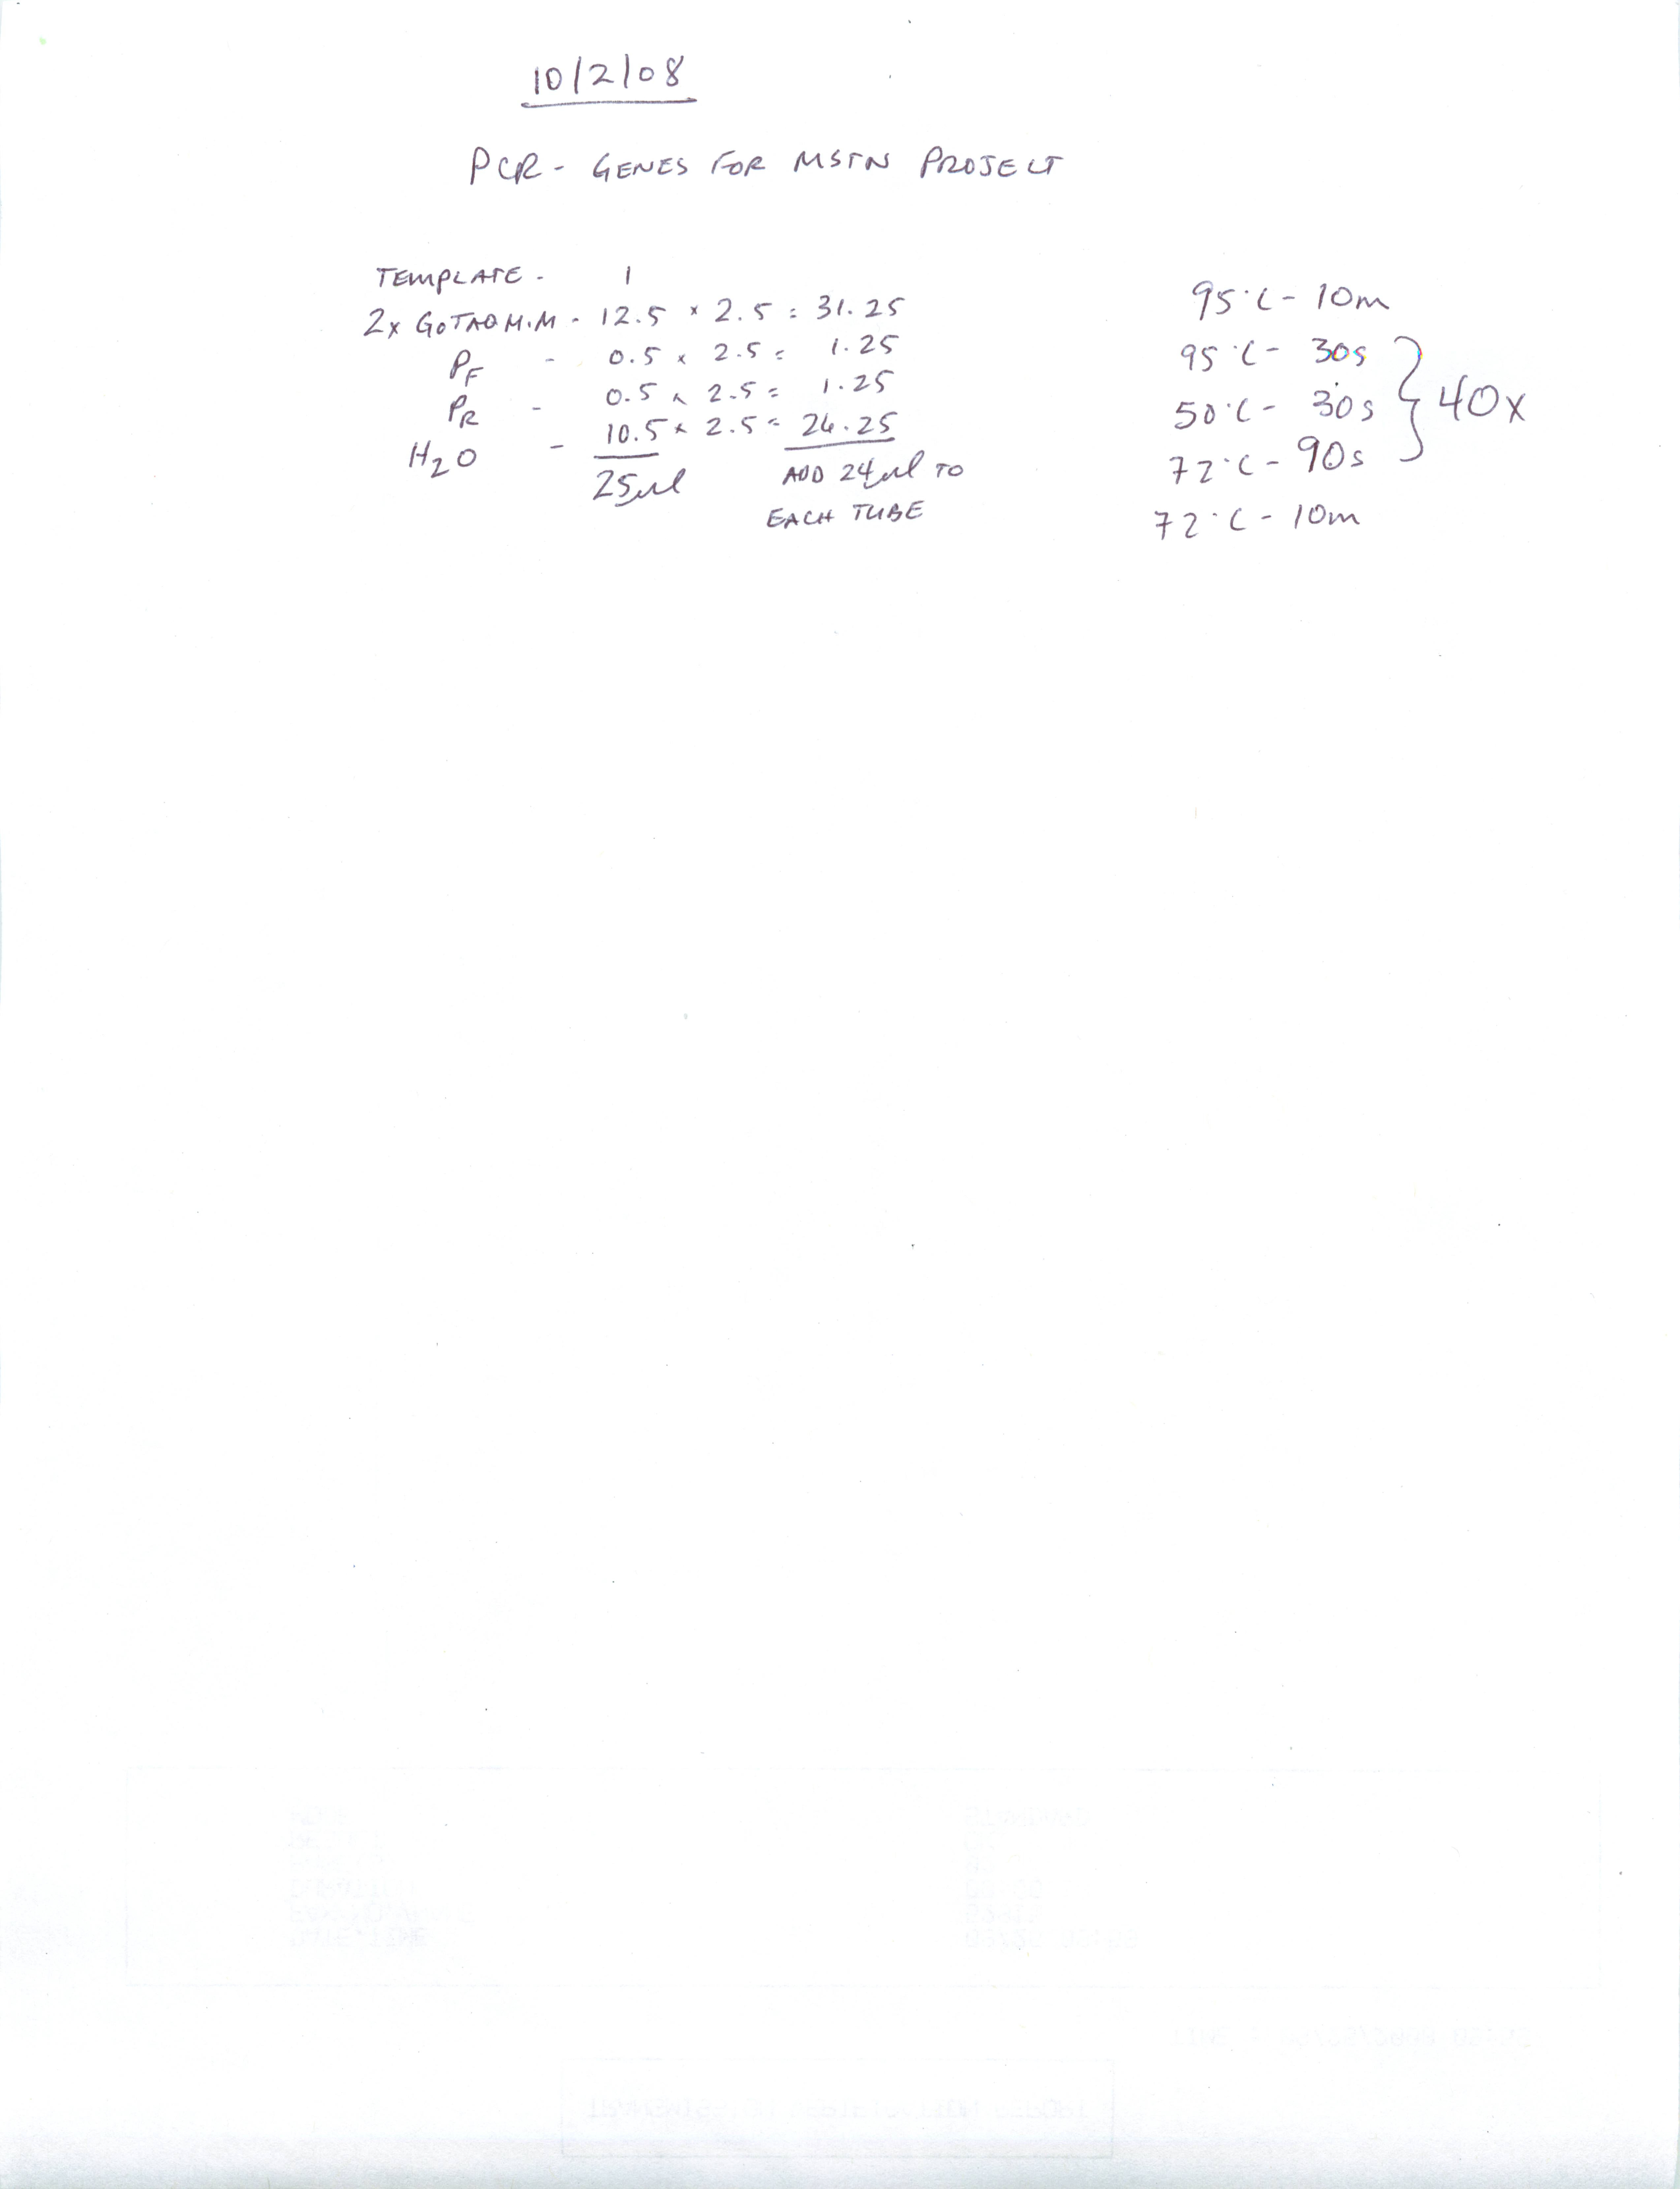 10/2/08
PCR - GENES FOR MSTN PROJECT
TEMPLATE - 1
2x GOTAQ M.M - 12.5 x 2.5 = 31.25
PF - 0.5 x 2.5 = 1.25
PR - 0.5 x 2.5 = 1.25
H2O - 10.5 x 2.5 = 26.25
25µl
ADD 24µl TO
EACH TUBE
95°C - 10m
95°C - 30s
50°C - 30s } 40x
72°C - 90s
72°C - 10m